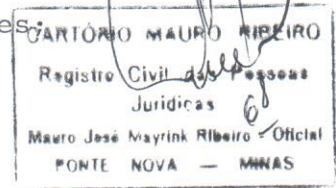 es:
CARTÓRIO MAURO RIBEIRO
Registro Civil das Pessoas
Jurídicas
Mauro José Mayrink Ribeiro - Oficial
PONTE NOVA — MINAS